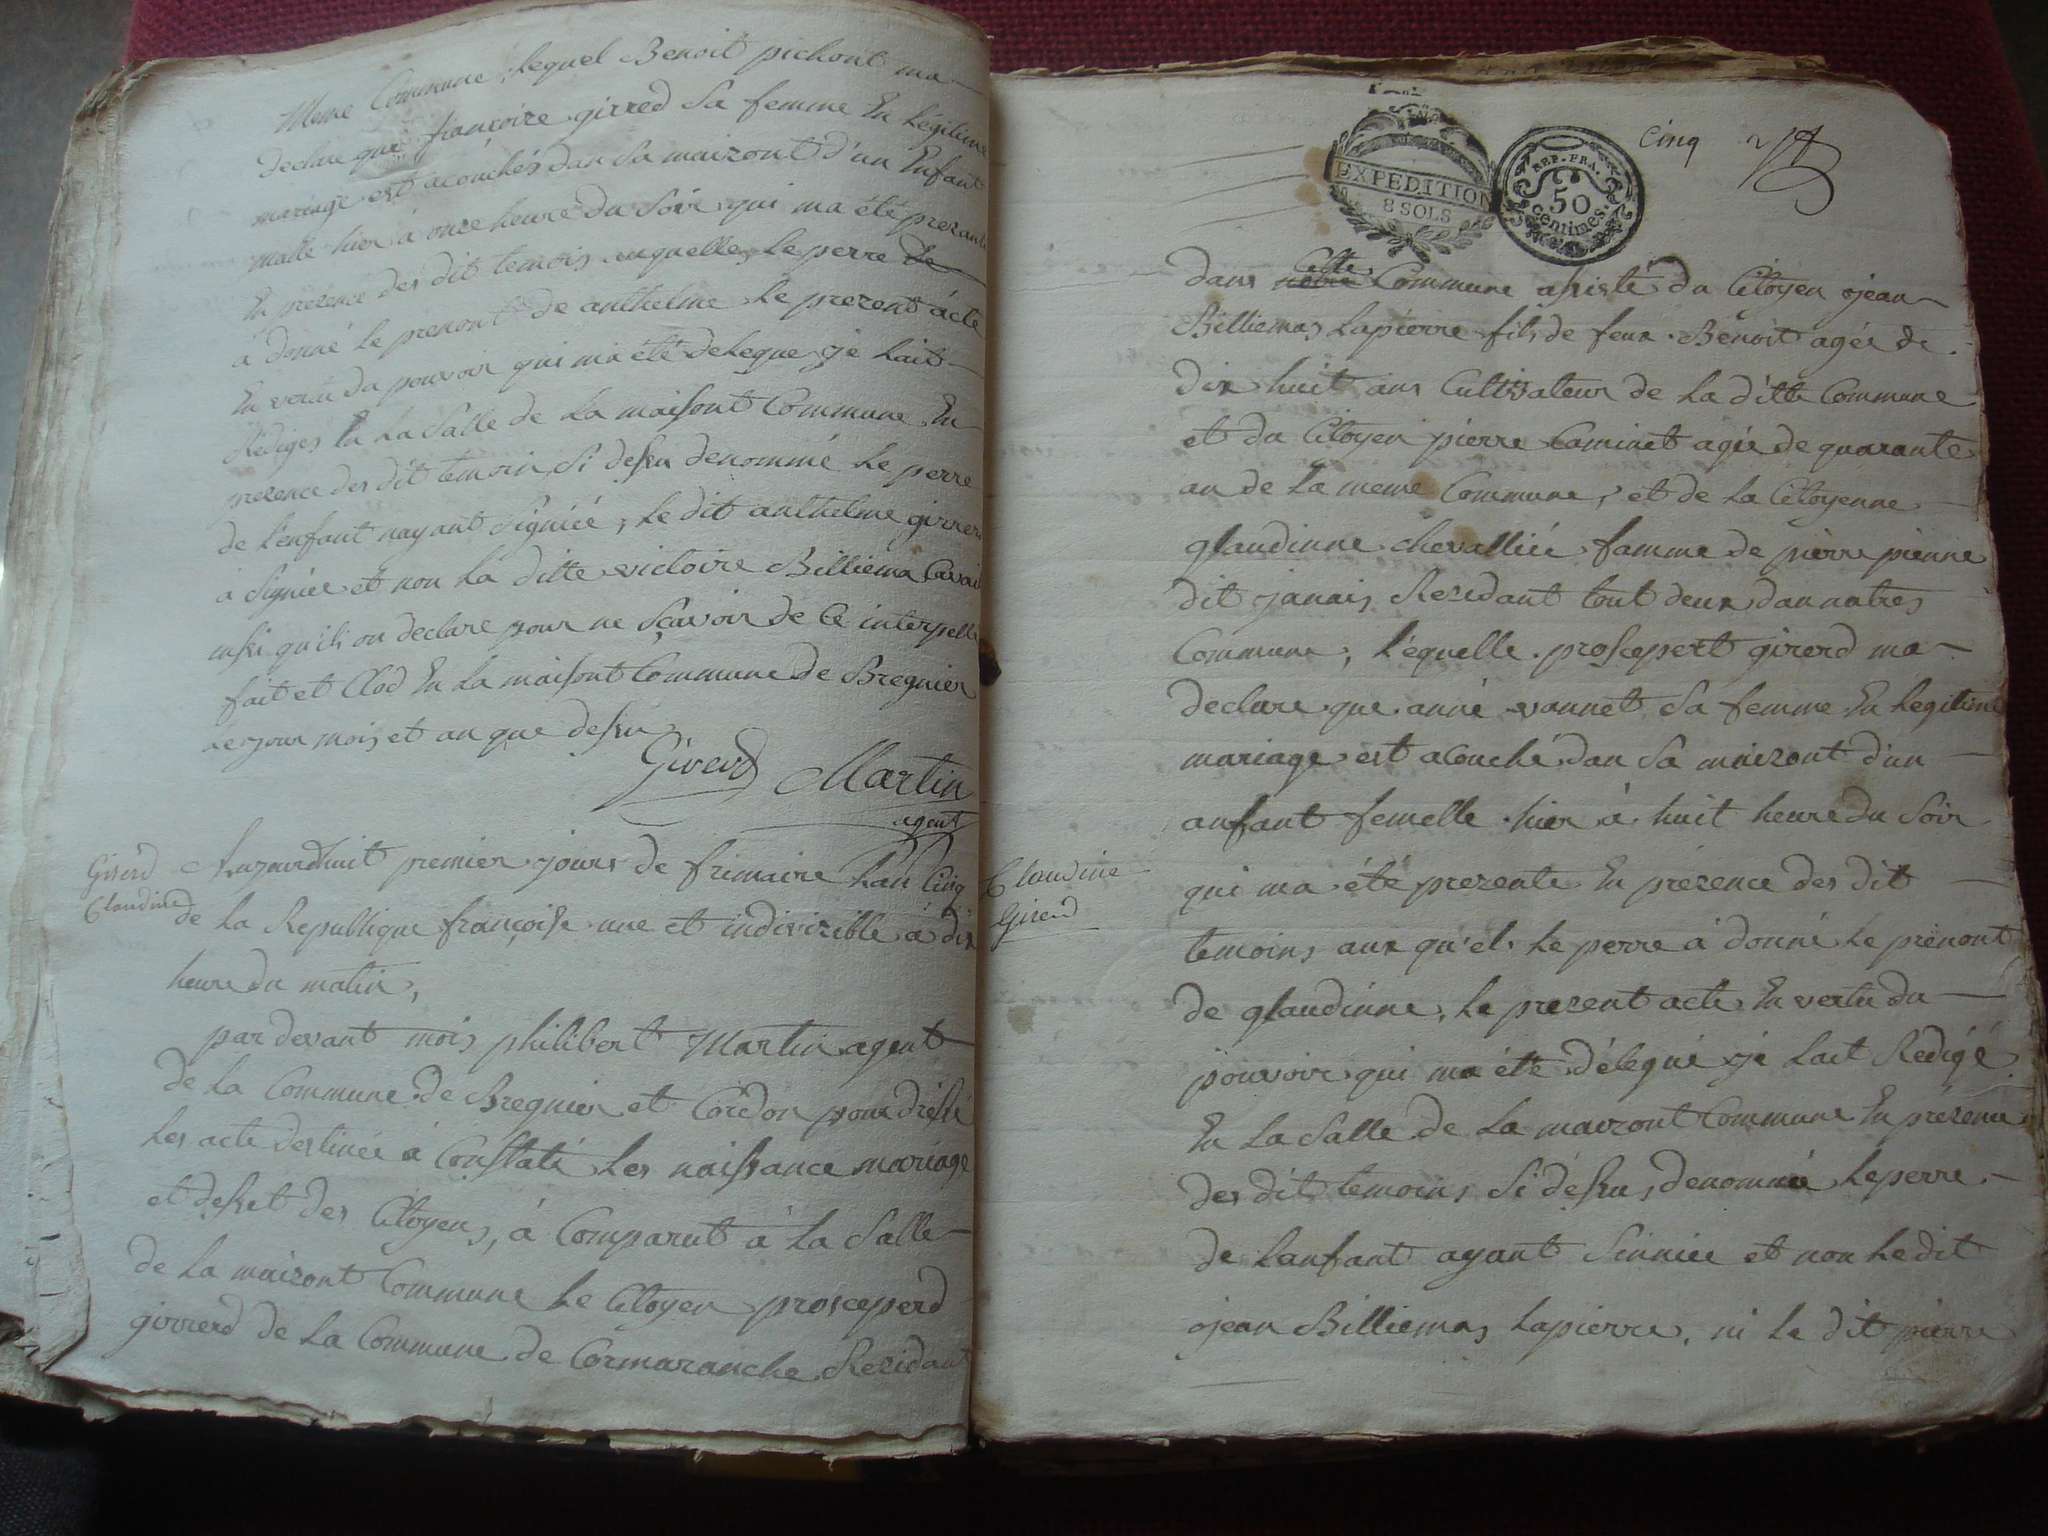 Meme Commune, Lequel Benoit pichont ma
declare que françoise girred Sa femme En Legitime
mariage est acouchés dan Sa maizont d'un Enfant
malle hier à onze heure du Soir qui ma été prezante
En présence des dit temois auquelles, Le perre de
à donné le prenont de anthelme Le prezent acte
En vertu du pouvoir qui ma été delegue je Lait
Rediges En La Salle de La maisont Commune En
presence des dit temoin Si desu denommé Le perre
de L'enfant nayant Signiéé, Le dit anthelme girrerd
a Signiée et non La ditte victoire Billiema
insi qu'ils on declare pour ne Sçavoir de Ce interpelle
fait et Clod En La maisont Commune de Bregnier
Le jour mois et an que desu
Girerd Martin
agent
Girerd
Claudine
Aujourdhuit premier jours de frimaire L'an Cinq
de La Republique françoise une et indivizible à dix
heure du matin,
par devant mois philibert Martin agent
de La Commune de Bregnier et Cordon pour dressé
Les acte destinée à Constaté Les naissance mariage
et deset des Citoyens, à Comparut à La Salle
de La maizont Commune Le Citoyen prosceperd
girrerd de La Commune de Cormaranche Rezidant
EXPEDITION
8 SOLS
REP. FRA.
50
centimes.
Cinq
Cette
dans notre Commune asisté du Citoyen jean
Billiemas Lapierre fils de feux Benoit agée de
dix huit ans Cultivateur de La ditte Commune
et du Citoyen pierre Caminet agée de quarante
an de La meme Commune, et de La Citoyenne
glaudinne chevalliée famme de pierre pienne
dit janais Rezidant tout deux dan notres
Commune, L'équelle proscepert girerd ma
declare que anne vannet Sa femme En Legitime
mariage est acouché dan Sa maizont d'un
anfant femelle hier à huit heure du Soir
Claudine
Girerd
qui ma été prezente En présence des dit
temoins aux qu'els Le perre à donné Le prenont
de glaudinne, Le prezent acte En vertu du
pouvoir qui ma été délegué je Lait Redigé
En La Salle de La maizont Commune En présence
des dit temoins Si desu, denommée Le perre
de L'anfant ayant Sinniée et non Le dit
jean Billiemas Lapierre, ni Le dit pierre